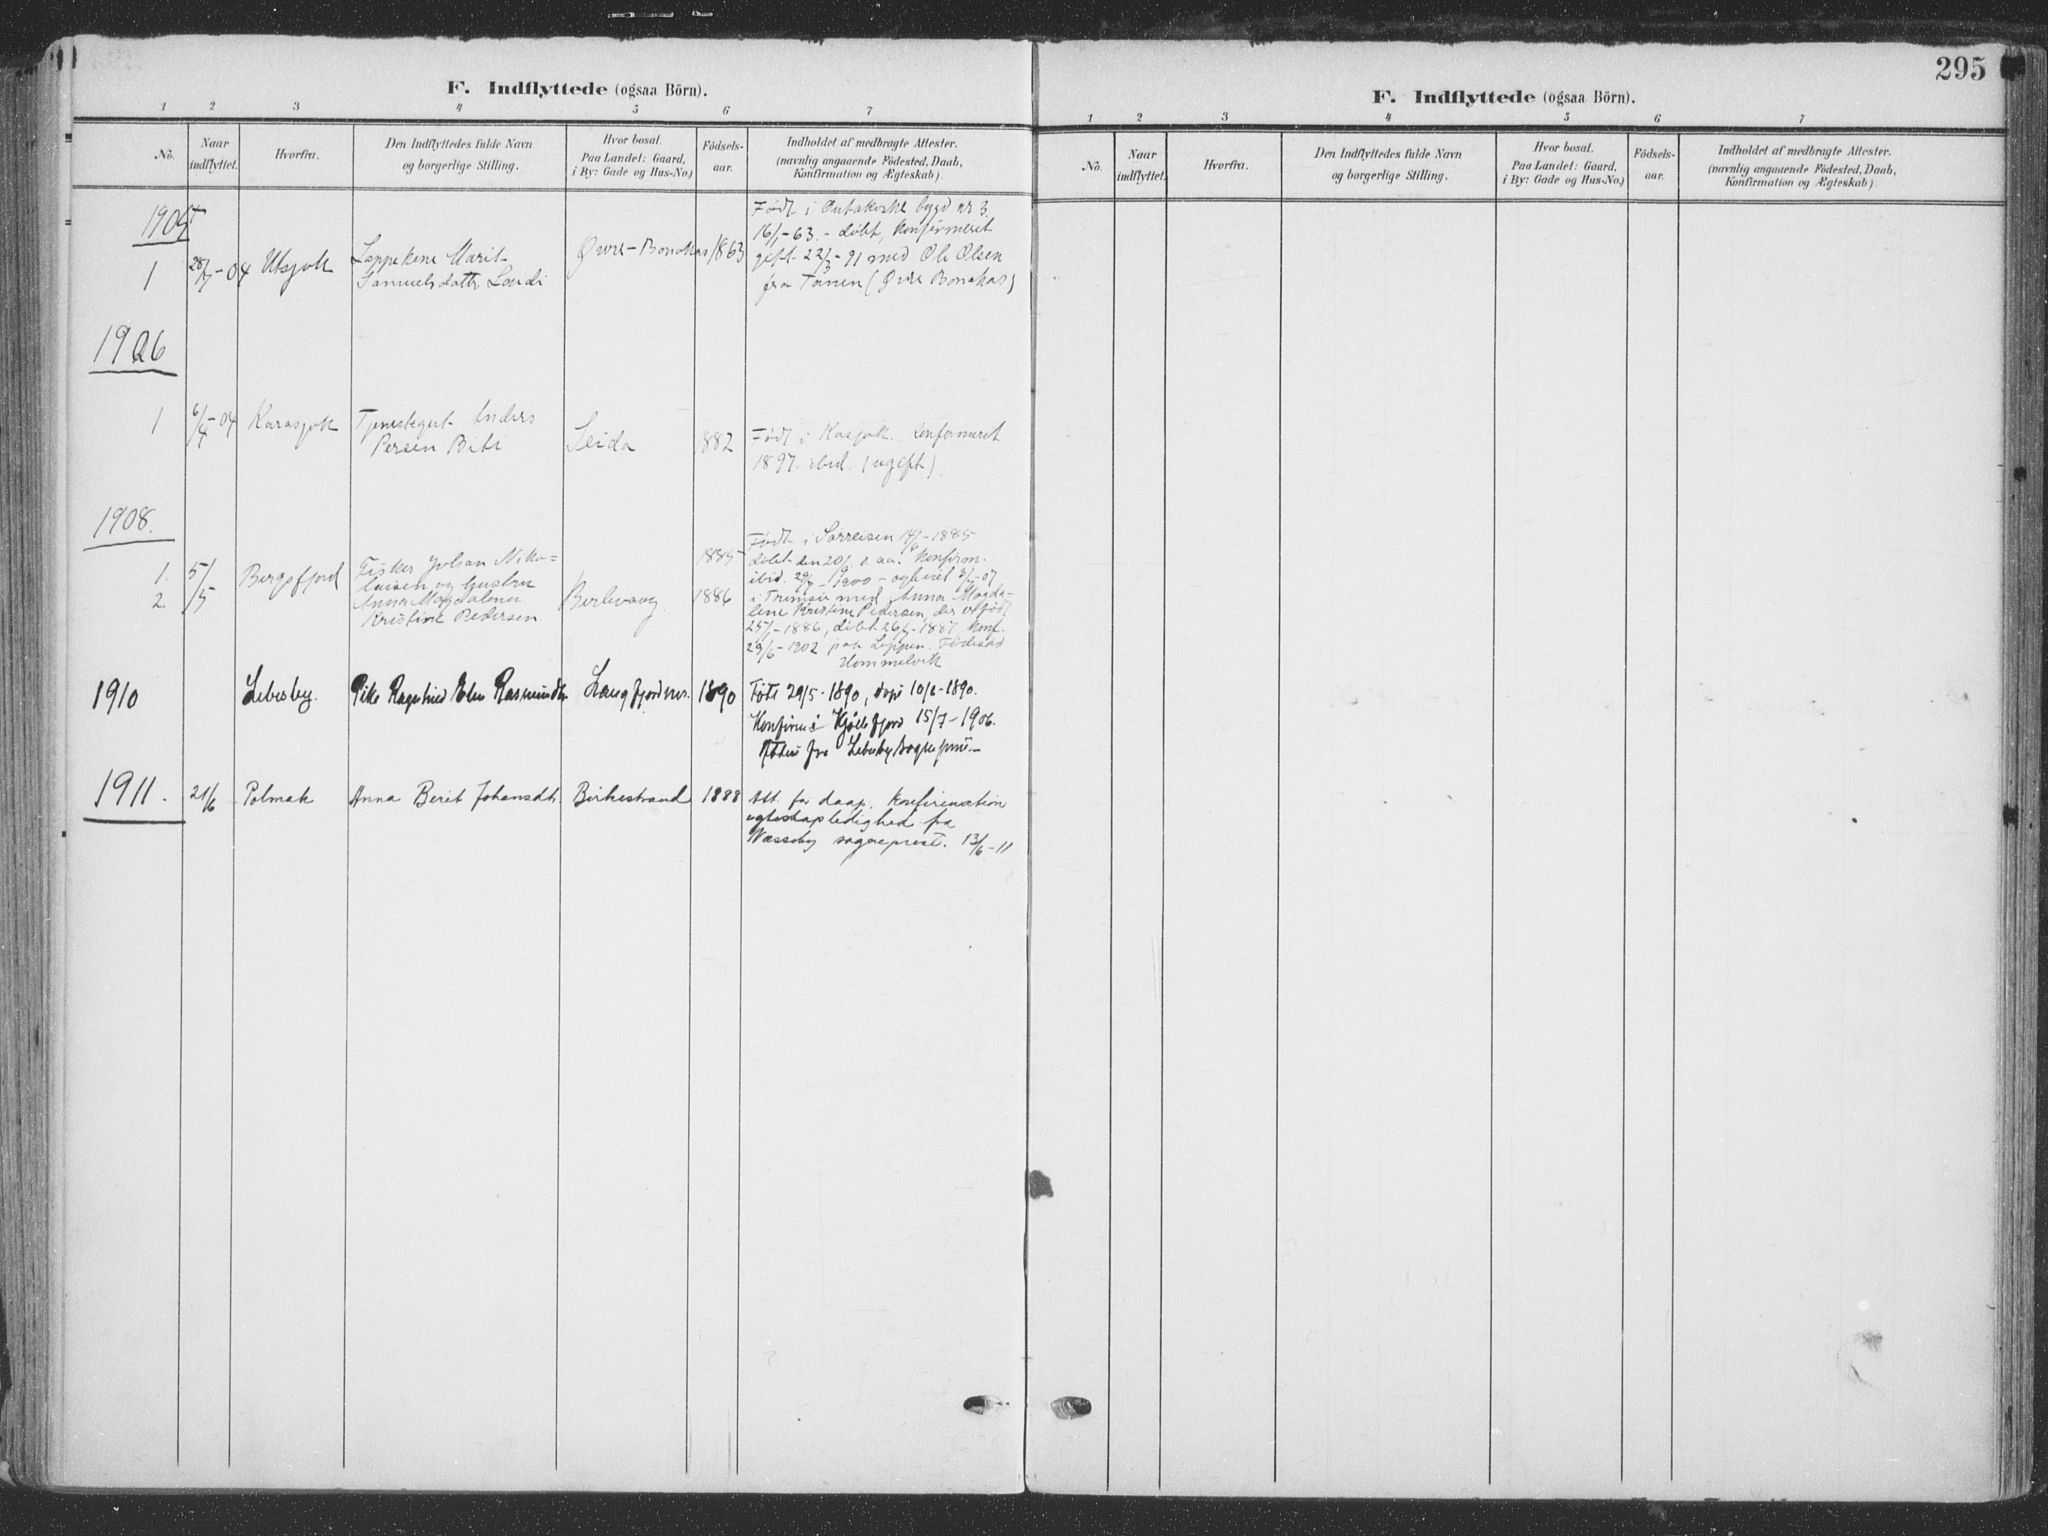 F. Indflyttede (ogsaa Börn).
1 2 3 4 5 6 7
No.
Naar
indflyttet.
Hvorfra.
Den Indflyttedes fulde Navn
og borgerlige Stilling.
Hvor bosat.
Paa Landet: Gaard,
i By: Gade og Hus-No.)
Födsels-
aar.
Indholdet af medbragte Attester.
(navnlig angaaende Födested, Daab,
Konfirmation og Ægteskab)
1905
1
28/7-04
Utsjok
Lappekone Marit
Samuelsdatter
Øvre-Bonakas
1863
Født i bygd nr 3.
16/1-63. - døbt, konfirmeret
gift 22/3-91 med Ole Olsen
fra Tanen (Øvre Bonakas)
1906
1
6/4-04
Karasjok
Tjenestegut Anders
Persen Biti
Leida
1882
Født i Kasjok. Konfirmeret
1897. ibid. (ugift)
1908.
1.
2.
5/5
Bergsfjord
Fisker Johan Niko-
laisen og hustru
Anna Magdalene
Kristine Pedersen.
Berlevaag
1885
1886
Født i Sørreisen 1885
døbt den 20/9 s. aa. Konfirm.
ibid. 1900 - og viet 07
i Tromsø med Anna Magda-
lene Kristine Pedersen, der er født
25/ - 1886, døbt 26/ - 1887, konf.
29/6-1902 paa Loppen. Fødested
Hommelvik
1910
Lebesby.
Pike Ragnhild Elen Rasmusdtr
Langfjordnes.
1890
Født 29/5-1890, døpt 10/6-1890.
Konfirm i Kjøllefjord 15/7-1906.
Attest fra Lebesby sogneprest.
1911.
21/6
Polmak
Anna Berit Johansdtr
Birkestrand
1888
Att. for daap, konfirmation
egteskapsledighed fra
Næsseby sogneprest. 13/6-11
295
F. Indflyttede (ogsaa Börn).
1 2 3 4 5 6 7
No.
Naar
indflyttet.
Hvorfra.
Den Indflyttedes fulde Navn
og borgerlige Stilling.
Hvor bosat.
Paa Landet: Gaard,
i By: Gade og Hus-No.)
Födsels-
aar.
Indholdet af medbragte Attester.
(navnlig angaaende Födested, Daab,
Konfirmation og Ægteskab)